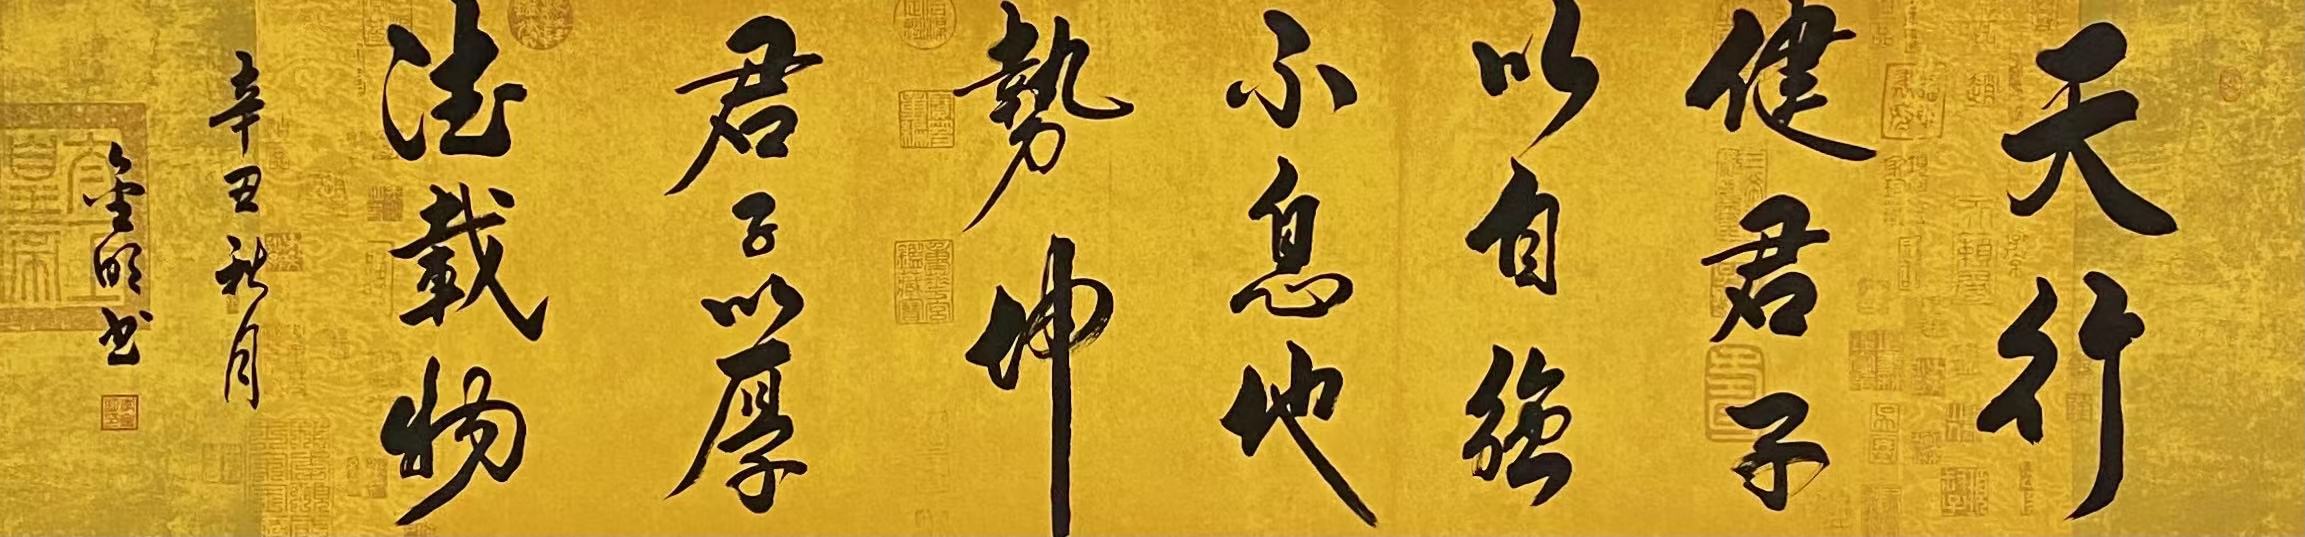 天行
健君子
以自強
不息地
勢坤
君子以厚
德載物
辛丑秋月
金明书